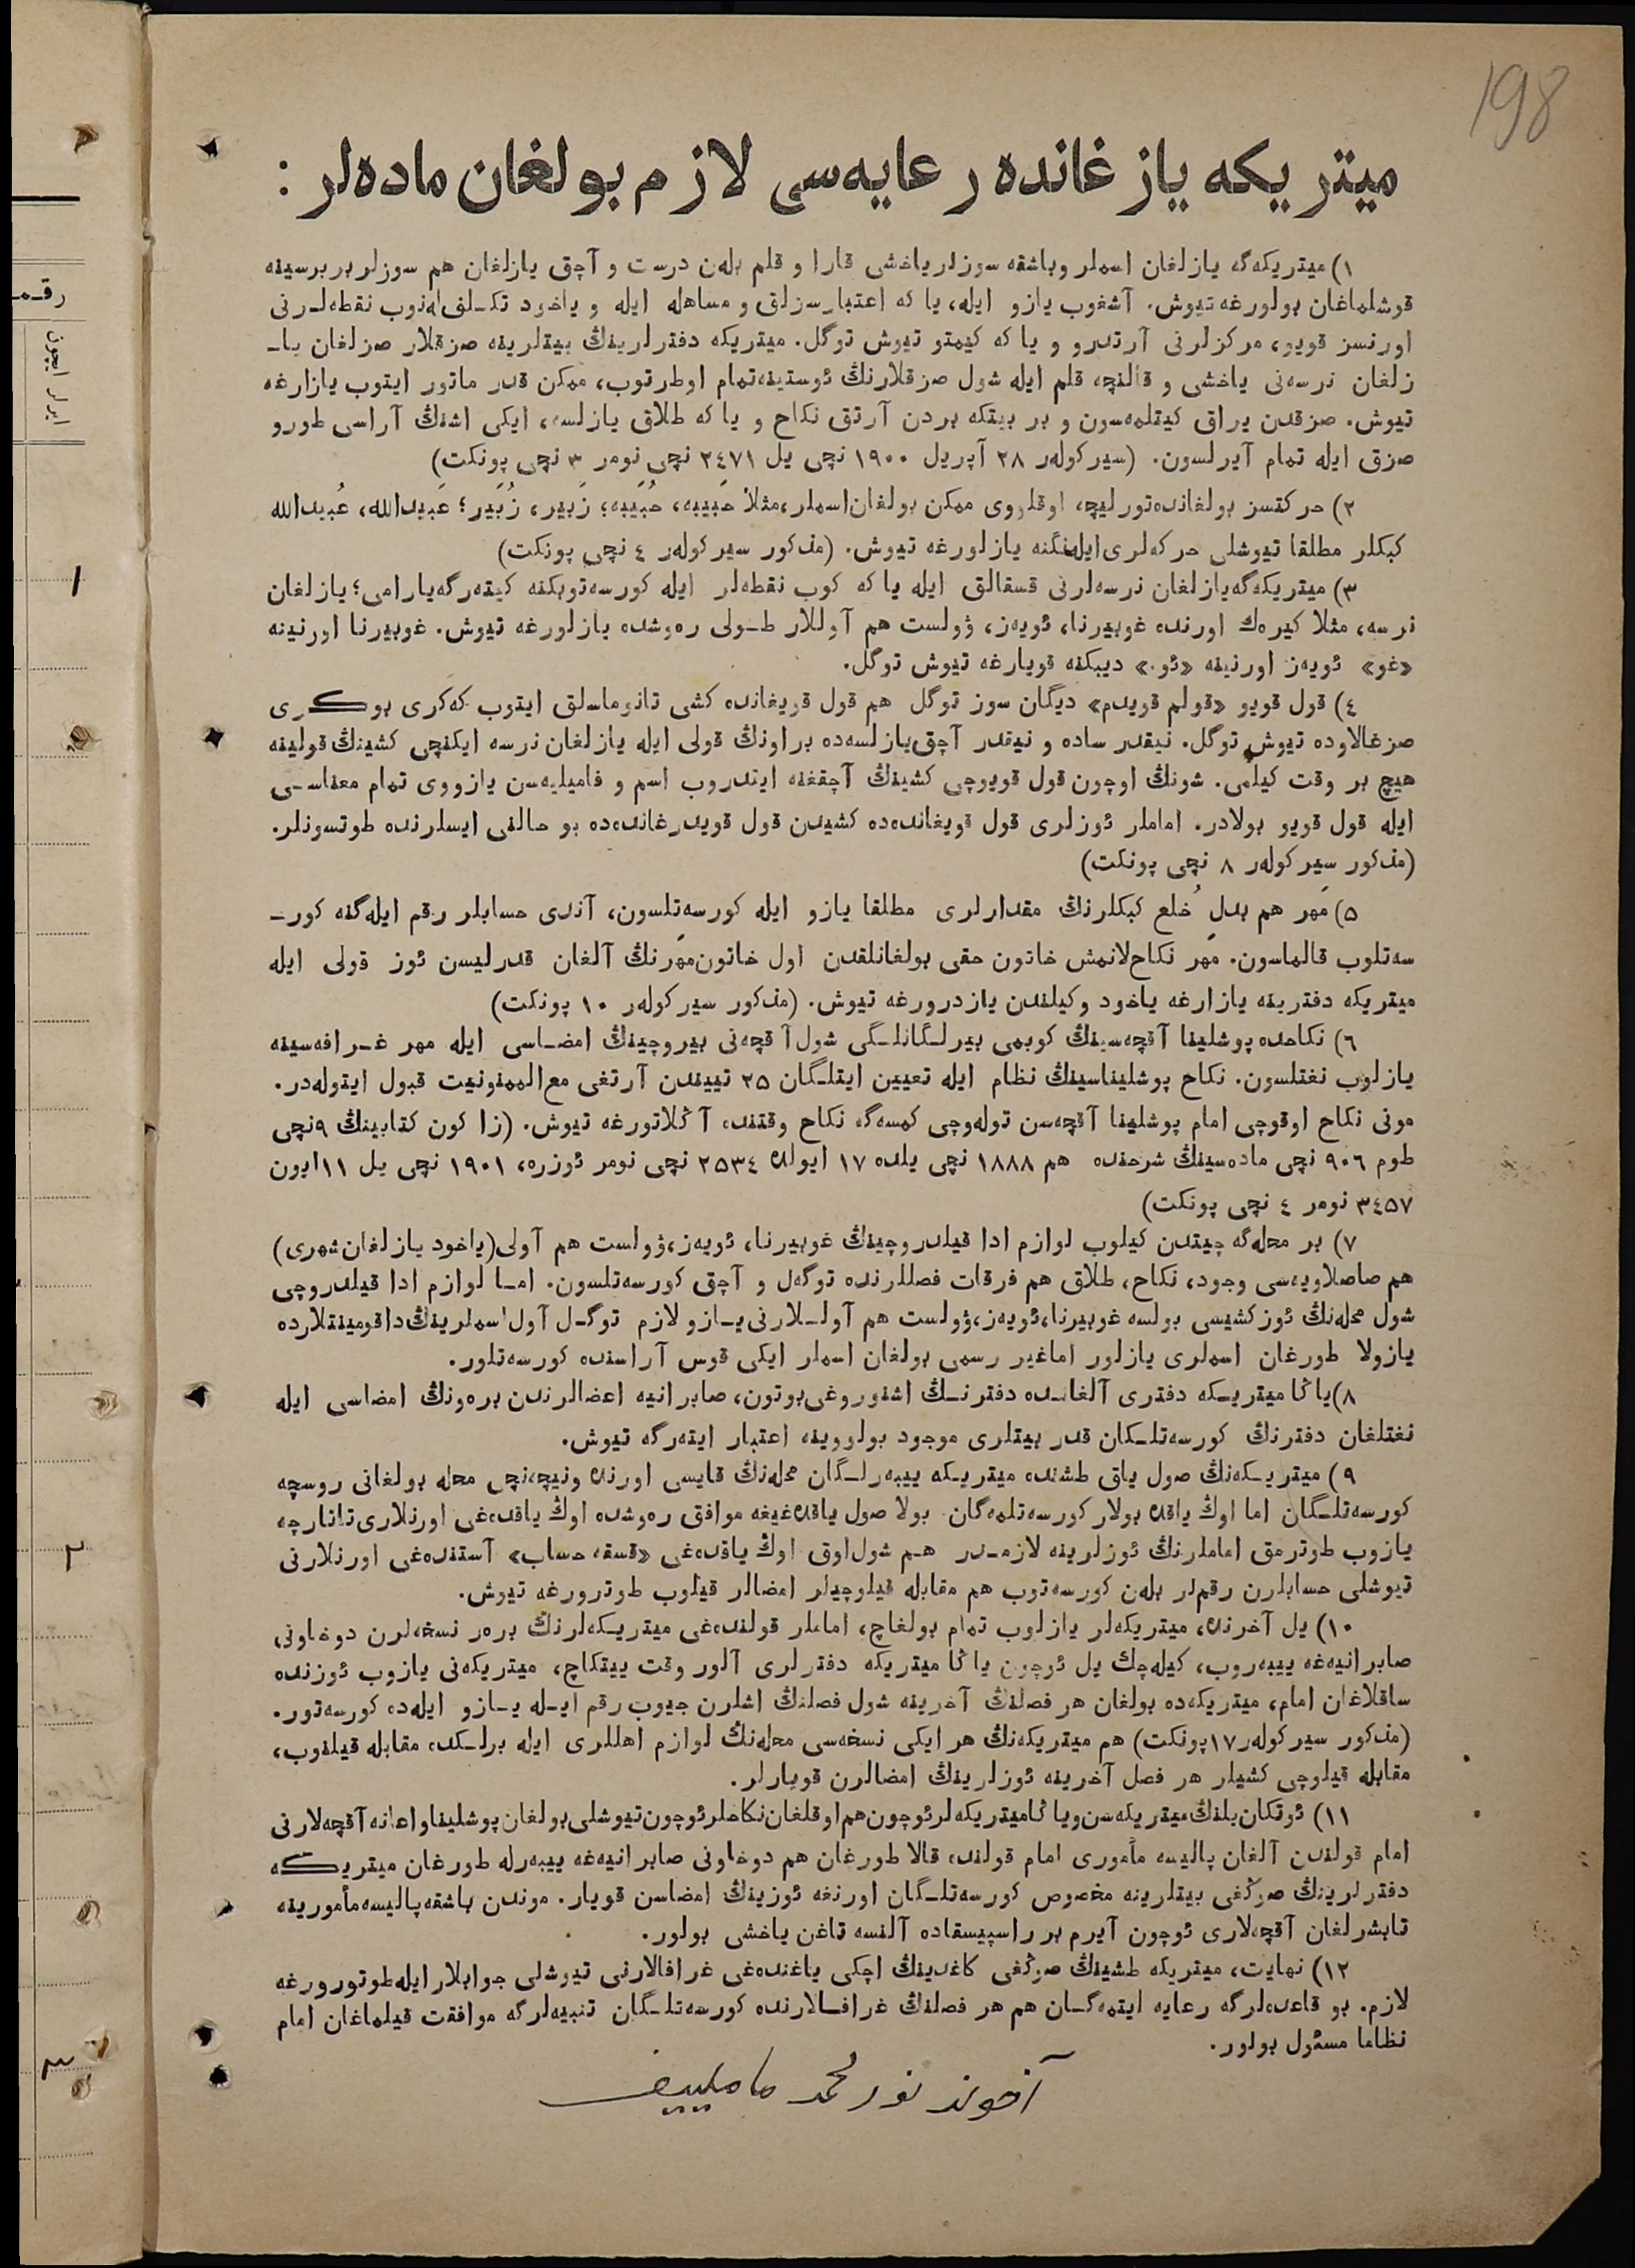 198
ميتريكه يازغانده رعايه‌سى لازم بولغان ماده‌لر :
١) ميتريكه‌گه يازلغان اسملر وباشقه سوزلر ياخشى قارا و قلم بلەن درست و آچق يازلغان هم سوزلر بر برسينه
قوشلماغان بولورغه تيوش. آشغوب يازو ايله، يا كه اعتبارسزلق و مساهله ايله و ياخود تكـلف له‌نوب نقطه‌لـرنى
اورنسز قويو، مركزلرنى آرتدرو و يا كه كيمتو تيوش توگل. ميتريكه دفترلرينڭ بيتلرينه صزقلار صزلغان يا-
زلغان نرسه‌نى ياخشى و قالنچه قلم ايله شول صزقلارنڭ ئوستينه تمام اوطرتوب، ممكن قدر ماتور ايتوب يازارغه
تيوش. صزقدن يراق كيتلمه‌سون و بر بيتكه بردن آرتق نكاح و يا كه طلاق يازلسه، ايكى اشنڭ آراسى طورو
صزق ايله تمام آيرلسون. (سيركولەر ٢٨ آپريل ١٩٠٠ نچى يل ٢٤٧١ نچى نومر ٣ نچى پونكت)
٢) حركتسز بولغانده تورليچه اوقلووى ممكن بولغان اسملر، مثلا حَبيبه، حُبَيبه؛ زَبير، زُبَير؛ عَبيدالله، عُبيدالله
كبكلر مطلقا تيوشلى حركه‌لرى ايله‌نگنه يازلورغه تيوش. (مذكور سيركولەر ٤ نچى پونكت)
٣) ميتريكه‌گه يازلغان نرسه‌لرنى قسقالق ايله يا كه كوب نقطه‌لر ايله كورسه‌توبكنه كيته‌رگه يارامى؛ يازلغان
نرسه، مثلا كيره‌ك اورنده غوبيرنا، ئويه‌ز، ۋولست هم آوللار طـولى ره‌وشده يازلورغه تيوش. غوبيرنا اورنينه
«غو» ئويه‌ز اورنينه «ئو.» ديبكنه قويارغه تيوش توگل.
٤) قول قويو «قولم قويدم» ديگان سوز توگل هم قول قويغانده كشى تانوماسلق ايتوب كه‌كرى بوكـرى
صزغالاوده تيوش توگل. نيقدر ساده و نيقدر آچق يازلسه‌ده براونڭ قولى ايله يازلغان نرسه ايكنچى كشينڭ قولينه
هيچ بر وقت كيلمى. شونڭ اوچون قول قويوچى كشينڭ آچقغنه ايتدروب اسم و فاميليه‌سن يازووى تمام معناسـى
ايله قول قويو بولادر. اماملر ئوزلرى قول قويغانده‌ده كشيدن قول قويدرغانده‌ده بو حالنى ايسلرنده طوتسونلر.
(مذكور سيركولەر ٨ نچى پونكت)
٥) مَهر هم بدلِ خُلع كبكلرنڭ مقدارلرى مطلقا يازو ايله كورسه‌تلسون، آندى حسابلر رقم ايله‌گنه كور-
سه‌تلوب قالماسون. مَهر نكاح‌لانمش خاتون حقى بولغانلقدن اول خاتون مهرنڭ آلغان قدرليسن ئوز قولى ايله
ميتريكه دفترينه يازارغه ياخود وكيلندن يازدرورغه تيوش. (مذكور سيركولەر ١٠ پونكت)
٦) نكاحده پوشلينا آقچه‌سينڭ كوبمى بيرلـگانلـگى شول آقچه‌نى بيروچينڭ امضـاسى ايله مهر غـرافه‌سينه
يازلوب نغتلسون. نكاح پوشليناسينڭ نظام ايله تعيين ايتلـگان ٢٥ تييندن آرتغى مع‌الممنونيت قبول ايتوله‌در.
مونى نكاح اوقوچى امام پوشلينا آقچه‌سن توله‌وچى كمسه‌گه نكاح وقتنده آڭلاتورغه تيوش. (زاكون كتابينڭ ٩نچى
طوم ٩٠٦ نچى ماده‌سينڭ شرحنده هم ١٨٨٨ نچى يلده ١٧ ايولده ٢٥٣٤ نچى نومر ئوزره، ١٩٠١ نچى يل ١١ايون
٣٤٥٧ نومر ٤ نچى پونكت)
٧) بر محله‌گه چيتدن كيلوب لوازم ادا قيلدروچينڭ غوبيرنا، ئويه‌ز، ۋولست هم آولى (ياخود يازلغان شهرى)
هم صاصلاويه‌سى وجود، نكاح، طلاق هم فرقات فصللرنده توگه‌ل و آچق كورسه‌تلسون. امـا لوازم ادا قيلدروچى
شول محله‌نڭ ئوز كشيسى بولسه غوبيرنا، ئويه‌ز، ۋولست هم آولـلارنى يـازو لازم توگـل آول اسملرينڭ داقومينتلارده
يازولا طورغان اسملرى يازلور اماغير رسمى بولغان اسملر ايكى قوس آراسنده كورسه‌تلور.
٨) ياڭا ميتريـكه دفترى آلغانـده دفترنـڭ اشنوروغى بوتون، صابرانيه اعضالرندن بره‌ونڭ امضاسى ايله
نغتلغان دفترنڭ كورسه‌تلـكان قدر بيتلرى موجود بولووينه اعتبار ايته‌رگه تيوش.
٩) ميتريـكه‌نڭ صول ياق طشنده ميتريكه ييبه‌رلـگان محله‌نڭ قايسى اورنده ونيچه‌نچى محله بولغانى روسچه
كورسه‌تلـگان اما اوڭ ياقده بولار كورسه‌تلمه‌گان. بولا صول ياقده‌غيغه موافق ره‌وشده اوڭ ياقده‌غى اورنلارى تاتارچه
يازوب طوترمق اماملرنڭ ئوزلرينه لازمـدر هـم شول‌اوق اوڭ ياقده‌غى «قسقه حساب» آستنده‌غى اورنلارنى
تيوشلى حسابلرن رقملر بلەن كورسه‌توب هم مقابله قيلوچيلر امضالر قيلوب طوترورغه تيوش.
١٠) يل آخرنده ميتريكه‌لر يازلوب تمام بولغاچ، اماملر قولنده‌غى ميتريـكه‌لرنڭ بره‌ر نسخه‌لرن دوخاونى
صابرانيه‌غه ييبه‌روب، كيله‌چك يل ئوچون ياڭا ميتريكه دفترلرى آلور وقت ييتكاچ، ميتريكه‌نى يازوب ئوزنده
ساقلاغان امام، ميتريكه‌ده بولغان هر فصلنڭ آخرينه شول فصلنڭ اشلرن جيوب رقم ايـله يـازو ايله‌ده كورسه‌تور.
(مذكور سيركولەر ١٧پونكت) هم ميتريكه‌نڭ هر ايكى نسخه‌سى محله‌نڭ لوازم اهللرى ايله برلـكده مقابله قيلنوب،
مقابله قيلوچى كشيلر هر فصل آخرينه ئوزلرينڭ امضالرن قويارلر.
١١) ئوتكان يلنڭ ميتريكه‌سن وياڭا ميتريكه‌لر ئوچون هم اوقلغان نكاحلر ئوچون تيوشلى بولغان پوشلينا و اعانه آقچه‌لارنى
امام قولندن آلغان پاليسه مأمورى امام قولنده قالا طورغان هم دوخاونى صابرانيه‌غه ييبه‌رله طورغان ميتريـكه
دفترلرينڭ صوڭغى بيتلرينه مخصوص كورسه‌تلـگان اورنغه ئوزينڭ امضاسن قويار. موندن باشقه پاليسه مأمورينه
تابشرلغان آقچه‌لارى ئوچون آيرم بر راسپيسقاده آلنسه تاغن ياخشى بولور.
١٢) نهايت، ميتريكه طشينڭ صوڭغى كاغدينڭ اچكى ياغنده‌غى غرافالارنى تيوشلى جوابلار ايله طوتورورغه
لازم. بو قاعده‌لرگه رعايه ايتمه‌گـان هم هر فصلنڭ غرافـالارنده كورسه‌تلـگان تنبيه‌لرگه موافقت قيلماغان امام
نظاما مسئول بولور.
آخوند نور محمد مامليیف
رقـمـ
ايرلر ايچون
١
٢
٣